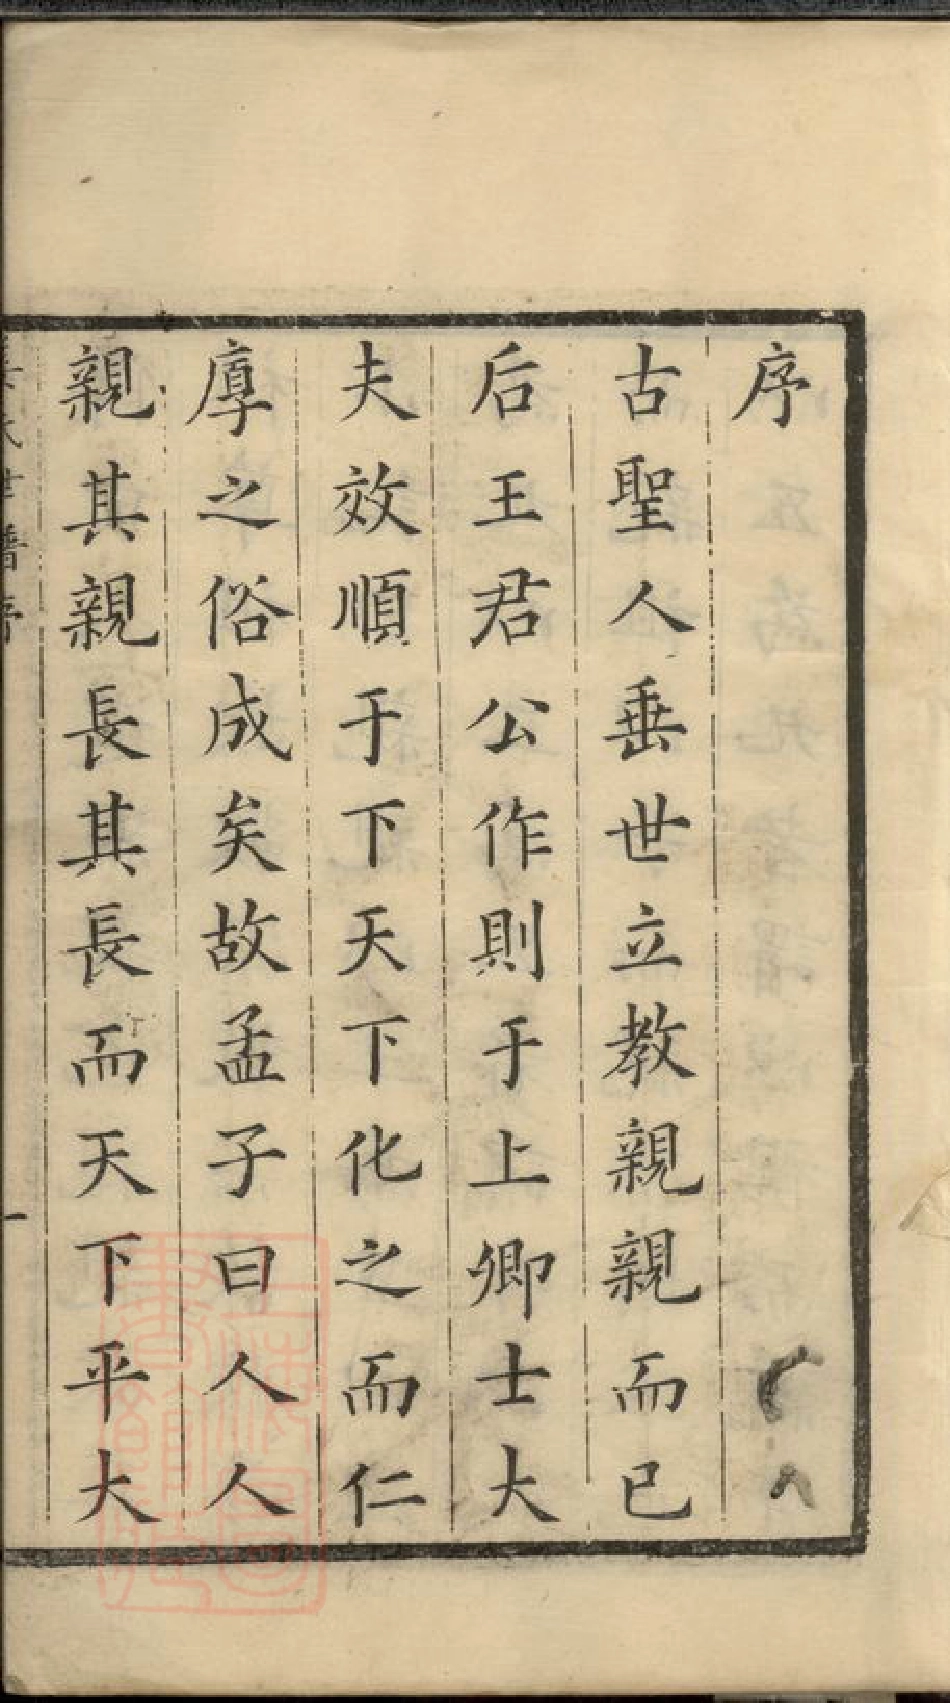 序
古聖人垂世立教親親而已
后王君公作則于上卿士大
夫效順于下天下化之而仁
厚之俗成矣故孟子曰人人
親其親長其長而天下平大